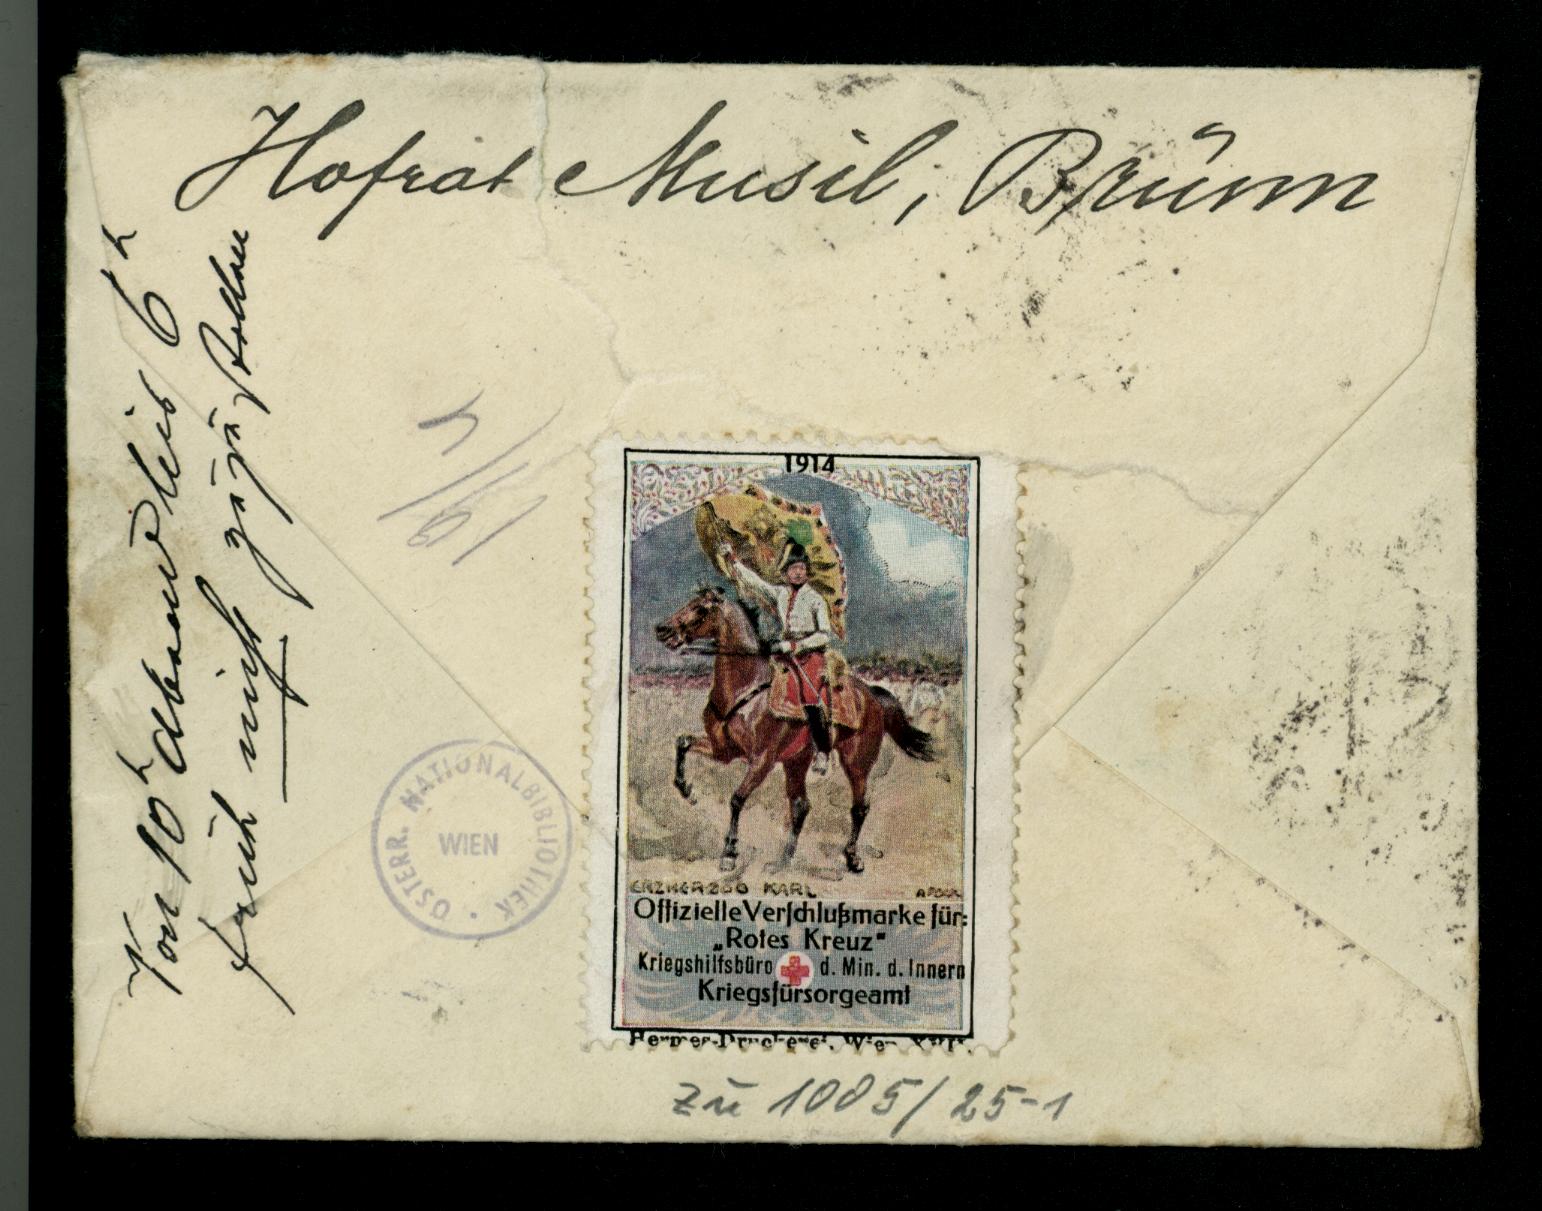 Hofrat Musil, Brünn
Von 10h abends bis 6h
früh nicht zuzustellen
ÖSTERR. NATIONALBIBLIOTHEK
WIEN
1914
ERZHERZOG KARL
Offizielle Verschlußmarke für:
„Rotes Kreuz"
Kriegshilfsbüro d. Min. d. Innern
Kriegsfürsorgeamt
Hermes-Druckerei, Wien XVII.
zu 1005/25-1